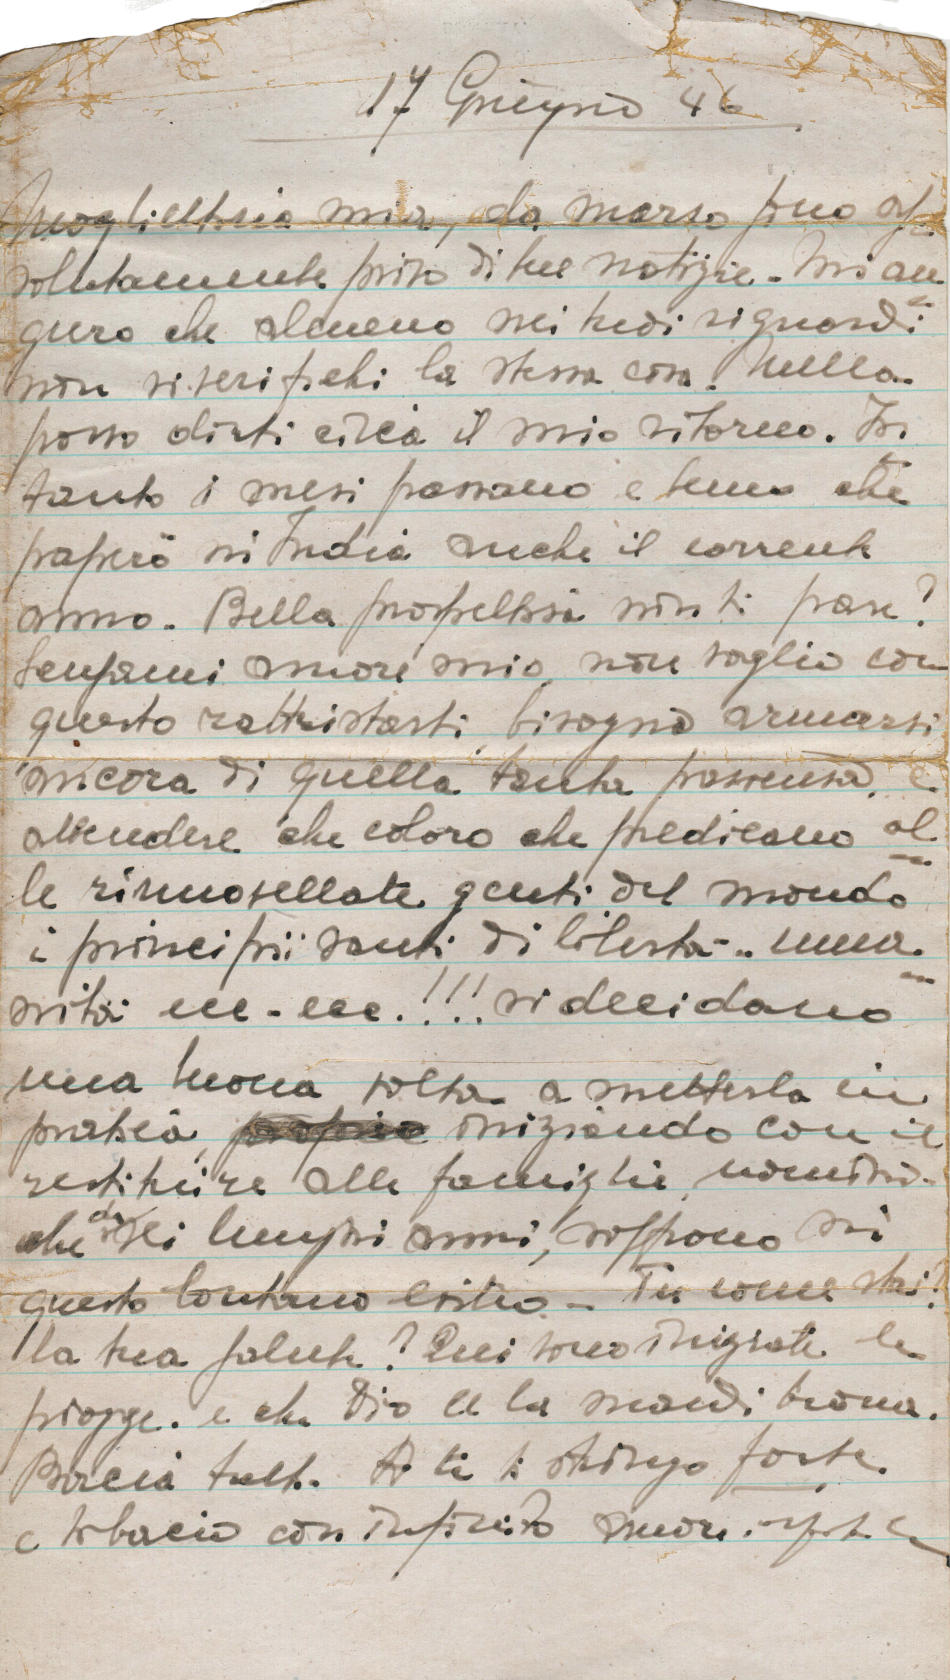 17 Giugno 46
Mogliettina mia, da marzo sono as
solutamente privo di tue notizie. Mi au
guro che almeno nei tuoi riguardi
non si verifichi la stessa cosa. Nulla
posso dirti circa il mio ritorno. In
tanto i mesi passano e temo che
passerò in India anche il corrente
anno. Bella prospettiva non ti pare?
Scusami amore mio, non voglio con
questo rattristarti, bisogna armarsi
ancora di quella tanta pazienza, e
attendere che coloro che predicano al
le rimoxellate genti del mondo
i principii santi di libertà.. uma
nità ecc-ecc.!!! si decidano
una buona volta a metterla in
pratica, iniziando con il
restituire alle famiglie, uomini
che da sei lunghi anni, soffrono in
questo lontano esilio. Tu come stai?
la tua salute? Qui sono iniziate le
piogge. e che Dio ce la mandi buona.
Bacia tutti. A te ti stringo forte.
e ti bacio con infinito amore.